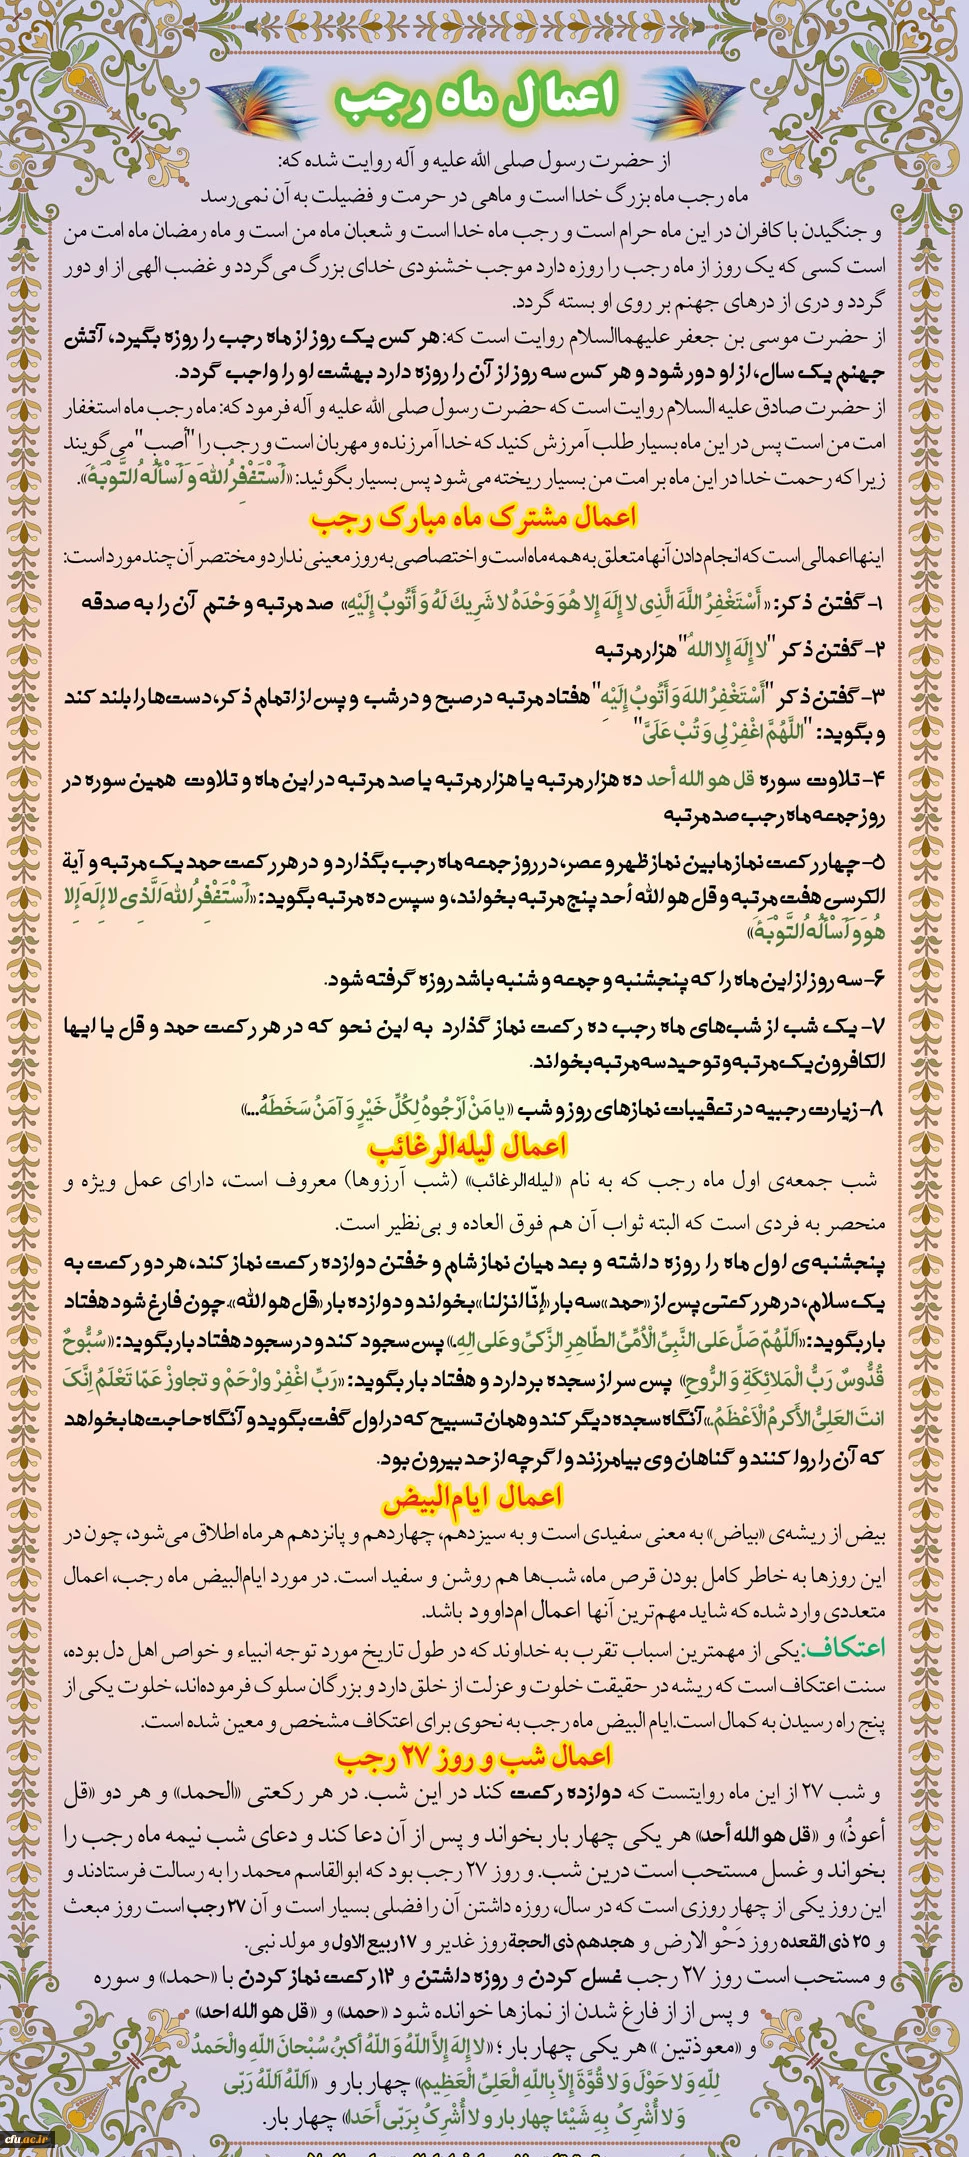 اعمال ماه رجب
از حضرت رسول صلی الله علیه و آله روایت شده که:
ماه رجب ماه بزرگ خدا است و ماهی در حرمت و فضیلت به آن نمی‌رسد
و جنگیدن با کافران در این ماه حرام است و رجب ماه خدا است و شعبان ماه من است و ماه رمضان ماه امت من
است کسی که یک روز از ماه رجب را روزه دارد موجب خشنودی خدای بزرگ می‌گردد و غضب الهی از او دور
گردد و دری از درهای جهنم بر روی او بسته گردد.
از حضرت موسی بن جعفر علیهماالسلام روایت است که: هر کس یک روز از ماه رجب را روزه بگیرد، آتش
جهنم یک سال، از او دور شود و هر کس سه روز از آن را روزه دارد بهشت او را واجب گردد.
از حضرت صادق علیه السلام روایت است که حضرت رسول صلی الله علیه و آله فرمود که: ماه رجب ماه استغفار
امت من است پس در این ماه بسیار طلب آمرزش کنید که خدا آمرزنده و مهربان است و رجب را "أصب" می‌گویند
زیرا که رحمت خدا در این ماه بر امت من بسیار ریخته می‌شود پس بسیار بگوئید: «أَسْتَغْفِرُ اللهَ وَ أَسْأَلُهُ التَّوْبَةَ».
اعمال مشترک ماه مبارک رجب
اینها اعمالی است که انجام دادن آنها متعلق به همه ماه است و اختصاصی به روز معینی ندارد و مختصر آن چند مورد است:
۱- گفتن ذکر: «أَسْتَغْفِرُ اللَّهَ الَّذِی لا إِلَهَ إِلا هُوَ وَحْدَهُ لا شَرِیكَ لَهُ وَ أَتُوبُ إِلَیْهِ» صد مرتبه و ختم آن را به صدقه
۲- گفتن ذکر "لا إِلَهَ إِلا اللهُ" هزار مرتبه
۳- گفتن ذکر "أَسْتَغْفِرُ اللهَ وَ أَتُوبُ إِلَیْهِ" هفتاد مرتبه در صبح و در شب و پس از اتمام ذکر، دست‌ها را بلند کند
و بگوید: "اللَّهُمَّ اغْفِرْ لِی وَ تُبْ عَلَیَّ"
۴- تلاوت سوره قل هو الله أحد ده هزار مرتبه یا هزار مرتبه یا صد مرتبه در این ماه و تلاوت همین سوره در
روز جمعه ماه رجب صد مرتبه
۵- چهار رکعت نماز مابین نماز ظهر و عصر، در روز جمعه ماه رجب بگذارد و در هر رکعت حمد یک مرتبه و آیة
الکرسی هفت مرتبه و قل هو الله أحد پنج مرتبه بخواند، و سپس ده مرتبه بگوید: «أَسْتَغْفِرُ اللهَ الَّذِی لا إِلَهَ إِلا
هُوَ وَ أَسْأَلُهُ التَّوْبَةَ»
۶- سه روز از این ماه را که پنجشنبه و جمعه و شنبه باشد روزه گرفته شود.
۷- یک شب از شب‌های ماه رجب ده رکعت نماز گذارد به این نحو که در هر رکعت حمد و قل یا ایها
الکافرون یک مرتبه و توحید سه مرتبه بخواند.
۸- زیارت رجبیه در تعقیبات نمازهای روز و شب «یا مَنْ اَرْجُوهُ لِکُلِّ خَیْرٍ وَ آمَنُ سَخَطَهُ...»
اعمال لیله‌الرغائب
شب جمعه‌ی اول ماه رجب که به نام «لیله‌الرغائب» (شب آرزوها) معروف است، دارای عمل ویژه و
منحصر به فردی است که البته ثواب آن هم فوق العاده و بی‌نظیر است.
پنجشنبه‌ی اول ماه را روزه داشته و بعد میان نماز شام و خفتن دوازده رکعت نماز کند، هر دو رکعت به
یک سلام، در هر رکعتی پس از «حمد» سه بار «إنّا انزلنا» بخواند و دوازده بار «قل هو الله». چون فارغ شود هفتاد
بار بگوید: «اَللّهُمّ صَلِّ عَلی النَّبِیِّ الْأُمِّیِّ الطّاهِرِ الزَّکیِّ وعَلی الِهِ.» پس سجود کند و در سجود هفتاد بار بگوید: «سُبُّوحٌ
قُدُّوسٌ رَبُّ الْمَلائِکَةِ وَ الرُّوحِ» پس سر از سجده بردارد و هفتاد بار بگوید: «رَبِّ اغْفِرْ وارْحَمْ و تجاوزْ عَمّا تَعْلَمُ اِنَّکَ
انتَ العَلِیُّ الأکرمُ الْاَعْظَمُ.» آنگاه سجده دیگر کند و همان تسبیح که در اول گفت بگوید و آنگاه حاجت‌ها بخواهد
که آن را روا کنند و گناهان وی بیامرزند و اگر چه از حد بیرون بود.
اعمال ایام‌البیض
بیض از ریشه‌ی «بیاض» به معنی سفیدی است و به سیزدهم، چهاردهم و پانزدهم هر ماه اطلاق می‌شود، چون در
این روزها به خاطر کامل بودن قرص ماه، شب‌ها هم روشن و سفید است. در مورد ایام‌البیض ماه رجب، اعمال
متعددی وارد شده که شاید مهم‌ترین آنها اعمال ام‌داوود باشد.
اعتکاف: یکی از مهمترین اسباب تقرب به خداوند که در طول تاریخ مورد توجه انبیاء و خواص اهل دل بوده،
سنت اعتکاف است که ریشه در حقیقت خلوت و عزلت از خلق دارد و بزرگان سلوک فرموده‌اند، خلوت یکی از
پنج راه رسیدن به کمال است. ایام البیض ماه رجب به نحوی برای اعتکاف مشخص و معین شده است.
اعمال شب و روز ۲۷ رجب
و شب ۲۷ از این ماه روایتست که دوازده رکعت کند در این شب. در هر رکعتی «الحمد» و هر دو «قل
أعوذُ» و «قل هو الله أحد» هر یکی چهار بار بخواند و پس از آن دعا کند و دعای شب نیمه ماه رجب را
بخواند و غسل مستحب است درین شب. و روز ۲۷ رجب بود که ابوالقاسم محمد را به رسالت فرستادند و
این روز یکی از چهار روزی است که در سال، روزه داشتن آن را فضلی بسیار است و آن ۲۷ رجب است روز مبعث
و ۲۵ ذی القعده روز دَحْوُ الارض و هجدهم ذی الحجة روز غدیر و ۱۷ ربیع الاول و مولد نبی.
و مستحب است روز ۲۷ رجب غسل کردن و روزه داشتن و ۱۲ رکعت نماز کردن با «حمد» و سوره
و پس از از فارغ شدن از نمازها خوانده شود «حمد» و «قل هو الله احد»
و «معوذتین» هر یکی چهار بار؛ «لا إلهَ إلاَّ اللّهُ وَ اللّهُ أکبرُ، سُبْحانَ اللّهِ والْحَمدُ
لِلّهِ وَ لا حَوْلَ وَ لا قُوَّةَ إلاّ بِاللّهِ الْعَلِیِّ الْعَظِیمِ» چهار بار و «اَللّهُ اَللّهُ رَبّی
وَ لا أُشْرِکُ بِهِ شَیْئا چهار بار و لا أُشْرِکُ بِرَبّی أَحَدا» چهار بار.
cfu.ac.ir